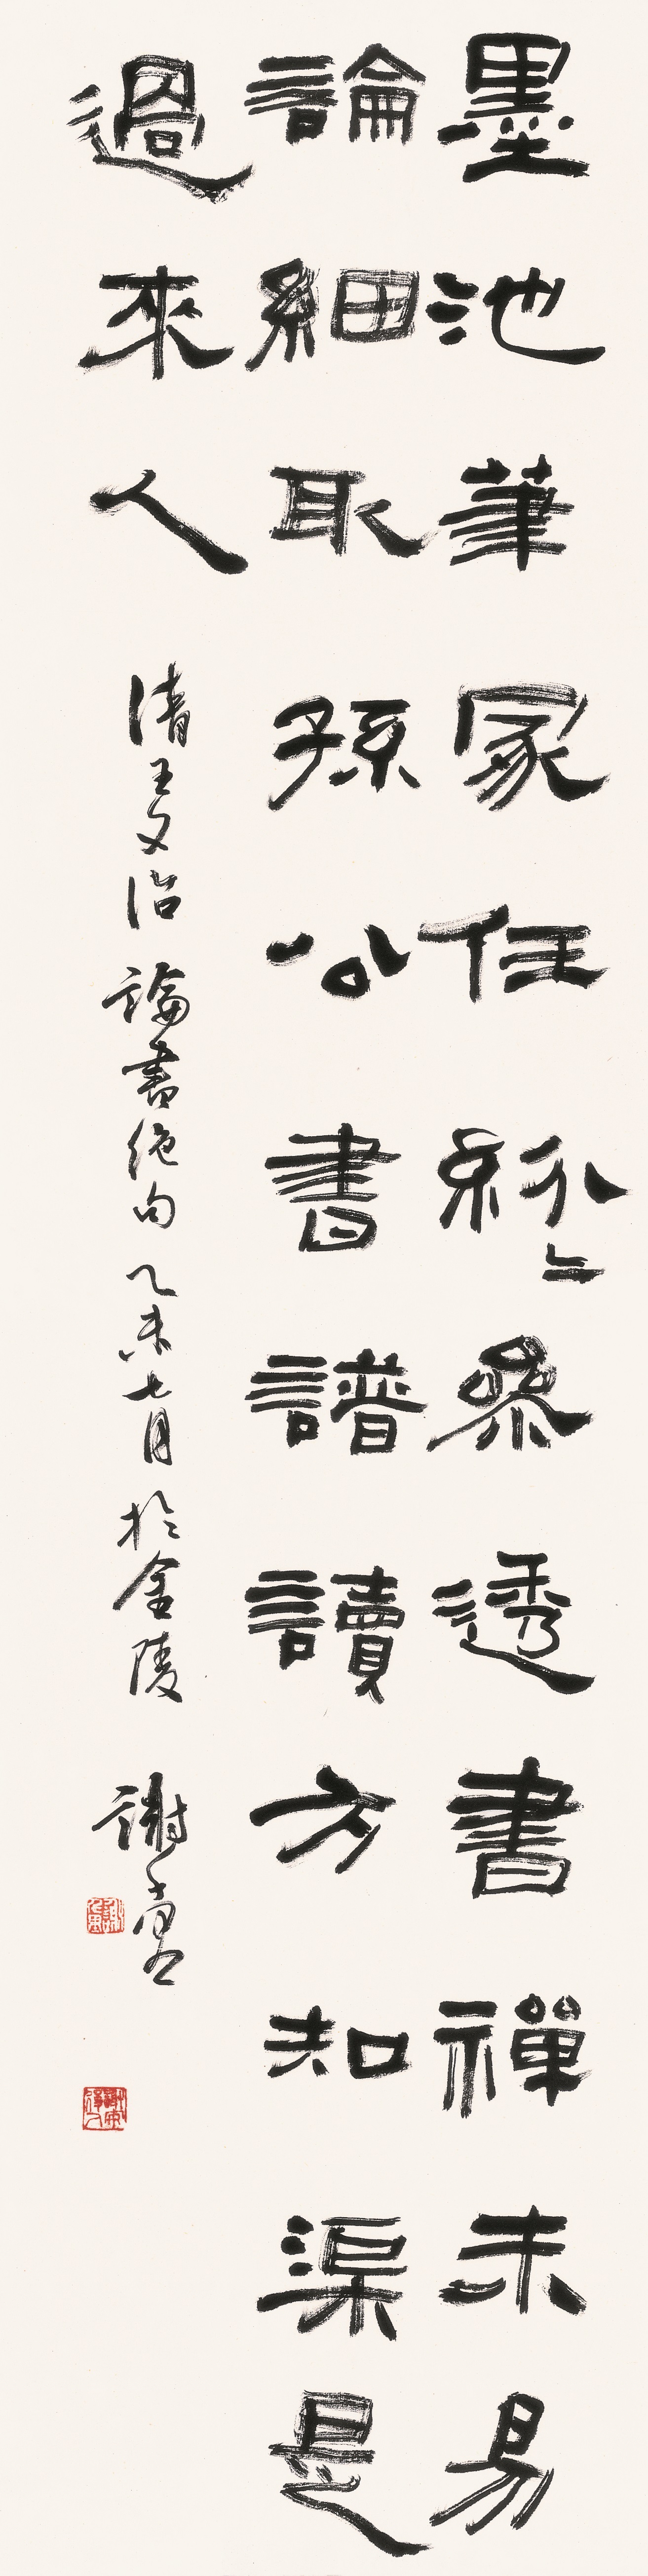 墨池筆冢任紛〻參透書禪未易
論細取孫公書譜讀方知渠是
過來人
清王文治論書絶句乙未七月於金陵謝